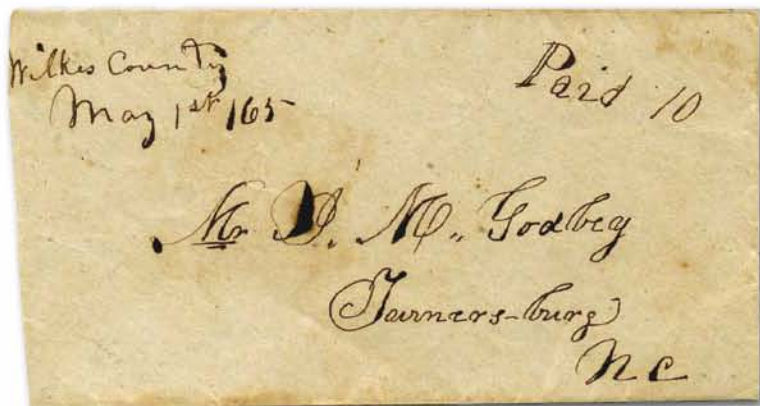 Wilkes County
May 1st 165
Paid 10
Mr D. M. Godbey
Turnersburg
N C